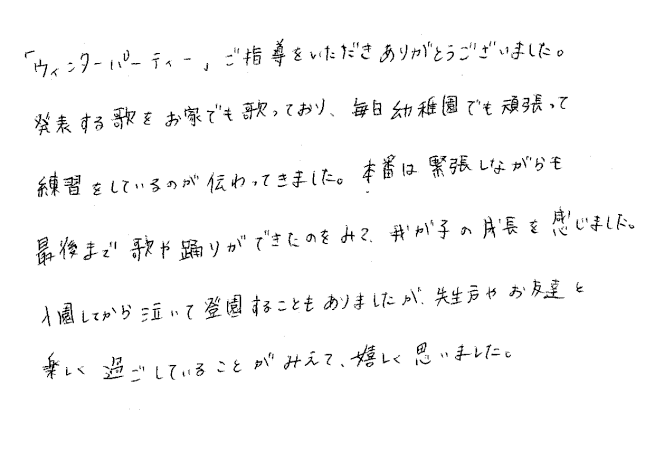 「ウィンターパーティー」ご指導をいただきありがとうございました。
発表する歌をお家でも歌っており、毎日幼稚園でも頑張って
練習をしているのが伝わってきました。本番は緊張しながらも
最後まで歌や踊りができたのをみて、我が子の成長を感じました。
入園してから泣いて登園することもありましたが、先生方やお友達と
楽しく過ごしていることがみえて、嬉しく思いました。